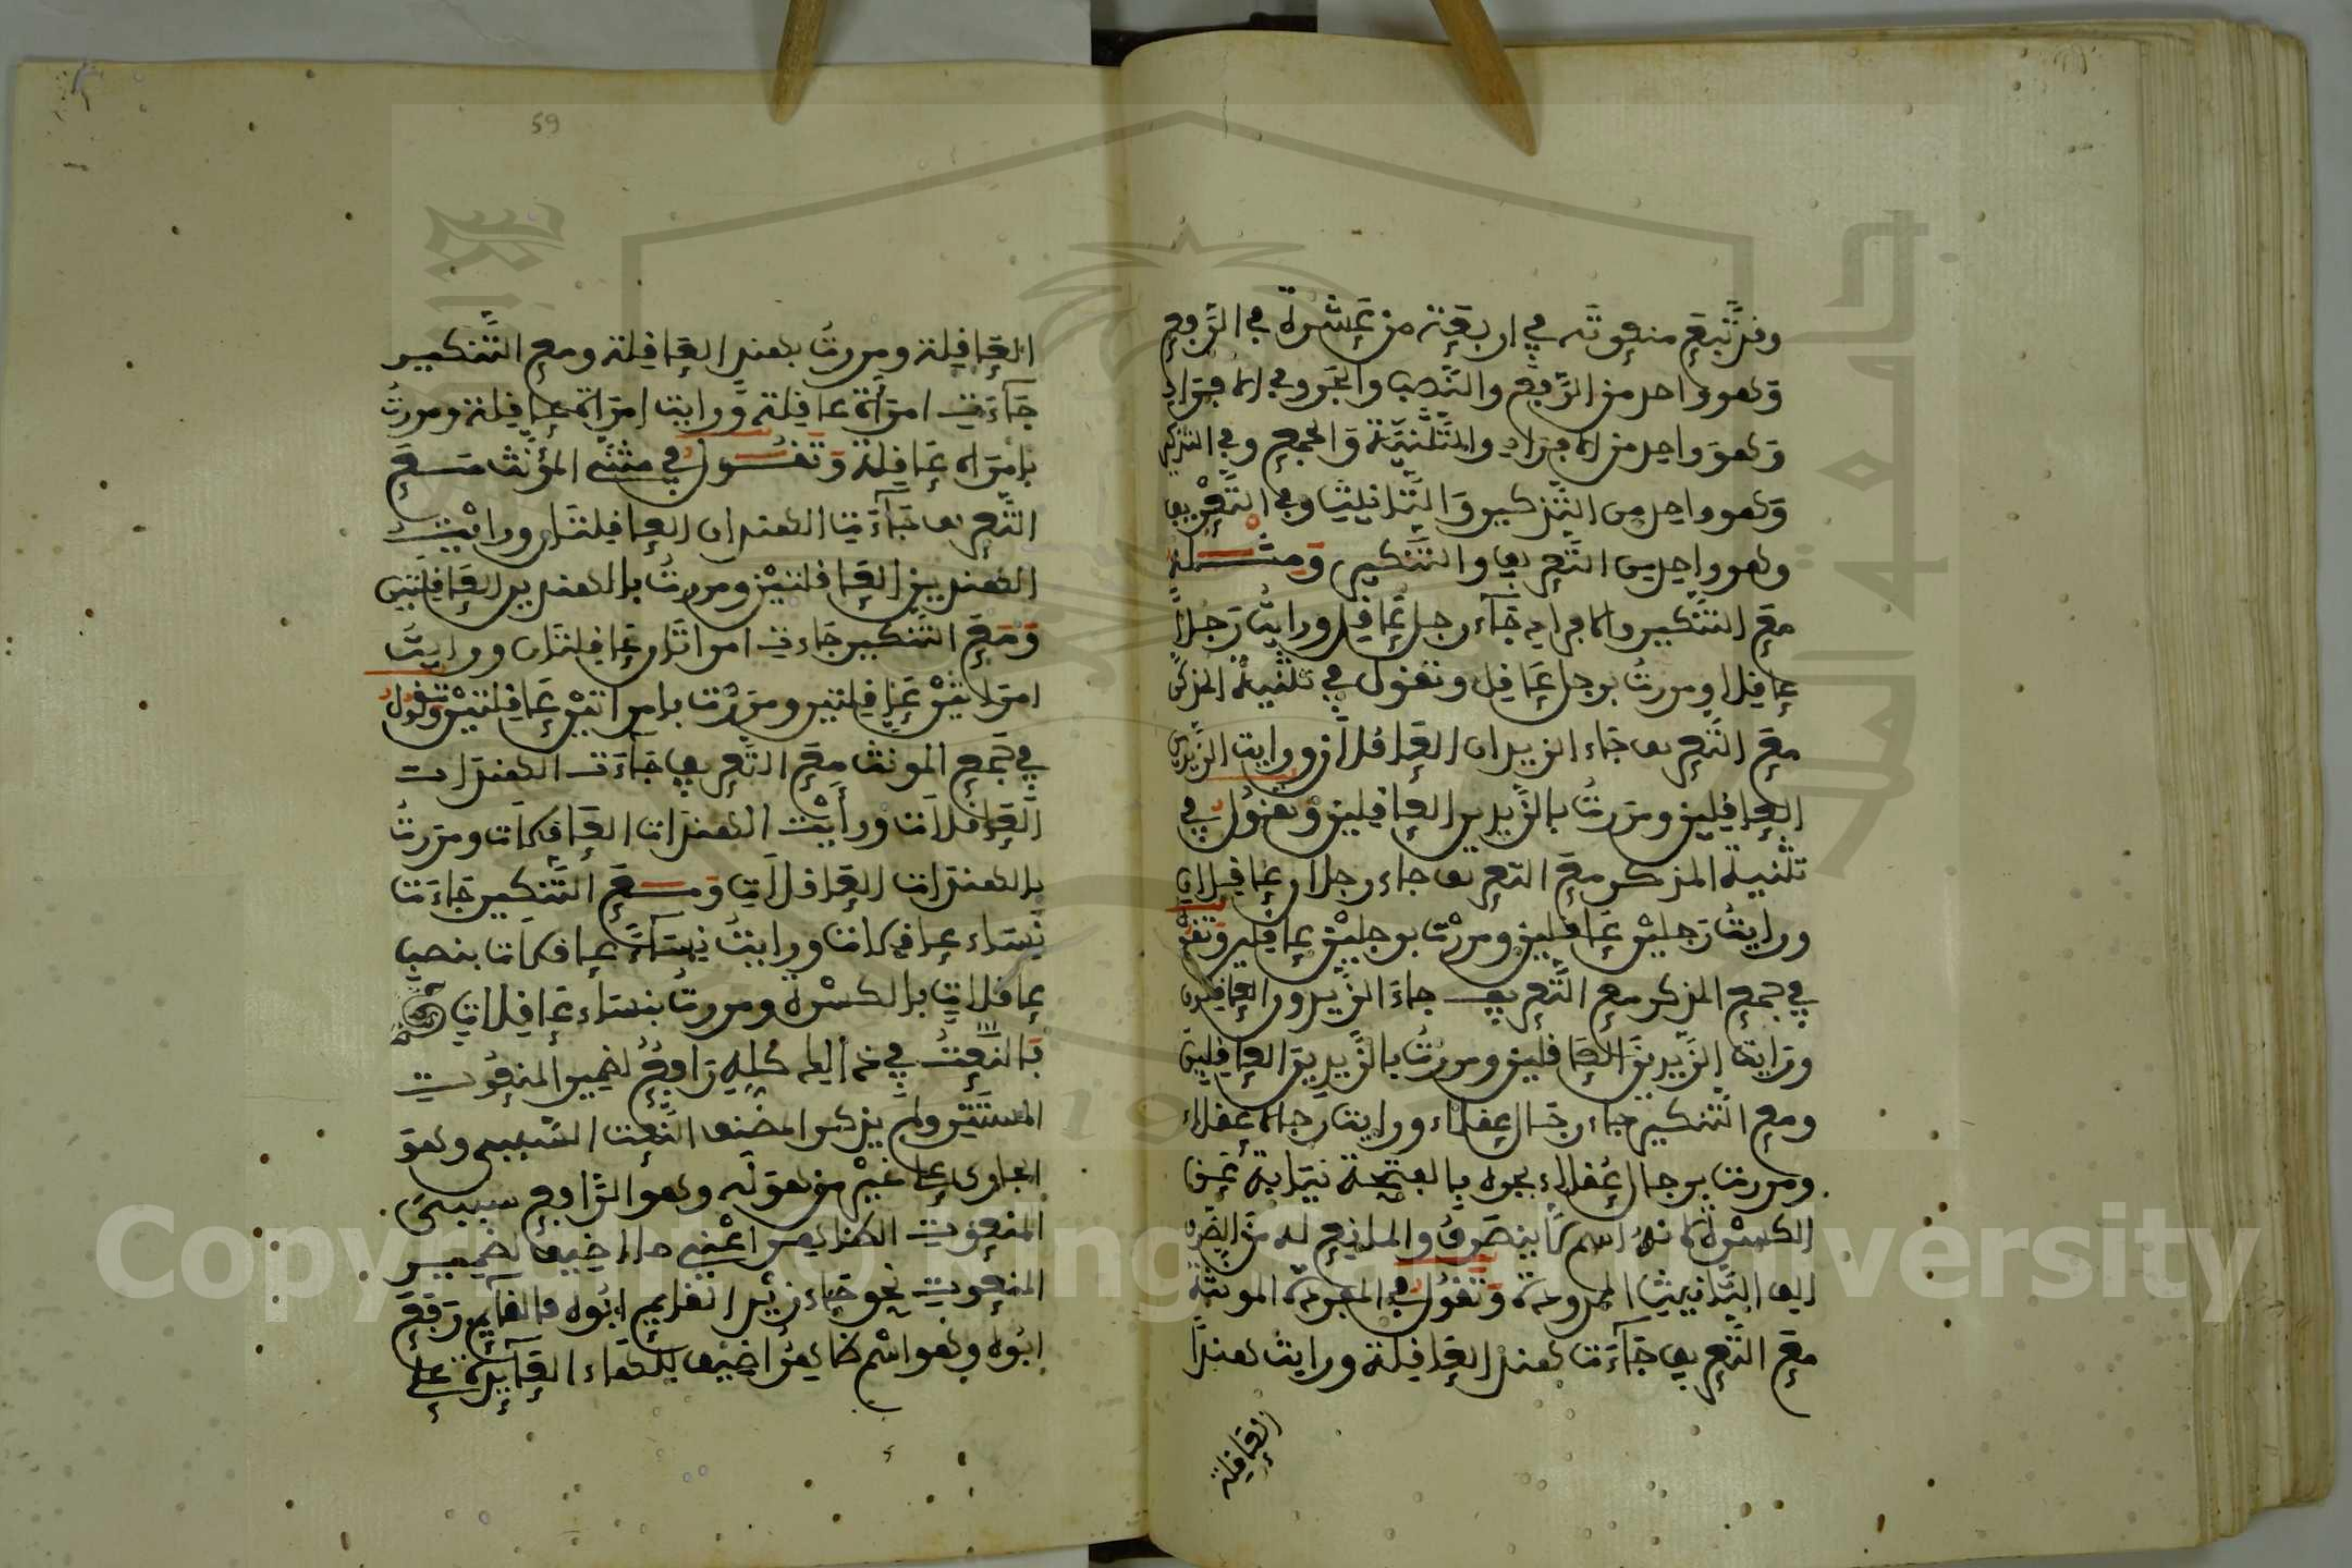 وقد تبع منعوته في اربعة من عشرة في الرفع
وهو واحد من الرفع والنصب والجر وفي الافراد
وهو واحد من الافراد والتثنية والجمع وفي التذكير
وهو واحد من التذكير والتانيث وفي التعريف
وهو واحد من التعريف والتنكير ومثاله
مع التنكير والافراد جآء رجل عاقل ورايت رجلا
عاقلا ومررت برجل عاقل وتقول في تثنية المذكر
مع التعريف جاء الزيدان العاقلان ورايت الزيدين
العاقلين ومررت بالزيدين العاقلين وتقول في
تثنية المذكر مع التعريف جاء رجلان عاقلان
ورايت رجلين عاقلين ومررت برجلين عاقلين وتقول
في جمع المذكر مع التعريف جاء الزيدون العاقلون
ورايت الزيدين العاقلين ومررت بالزيدين العاقلين
ومع التنكير جاء رجال عقلاء ورايت رجالا عقلاء
ومررت برجال عقلاء بجره بالفتحة نيابة عن
الكسرة لانه اسم لا ينصرف والمانع له من الصرف
الف التانيث الممدودة وتقول في المفردة المونثة
مع التعريف جآءت هند العاقلة ورايت هندا
العاقلة
59
العاقلة ومررت بهند العاقلة ومع التنكير
جآءت امرأة عاقلة ورايت امراة عاقلة ومررت
بامراة عاقلة وتقول في مثنى المؤنث مع
التعريف جآءت الهندان العاقلتان ورايت
الهندين العاقلتين ومررت بالهندين العاقلتين
ومع التنكير جاءت امراتان عاقلتان ورايت
امراتين عاقلتين ومررت بامراتين عاقلتين وتقول
في جمع المونث مع التعريف جآءت الهندات
العاقلات ورأيت الهندات العاقلات ومررت
بالهندات العاقلات ومع التنكير جاءت
نساء عاقلات ورايت نسآء عاقلات بنصب
عاقلات بالكسرة ومررت بنساء عاقلات
فالنعت في هذا كله رافع لضمير المنعوت
المستتر ولم يذكر المصنف النعت السببي وهو
الجاري على غير من هو له وهو الرافع سببي
المنعوت الظاهر اعني ما اضيف لضمير
المنعوت نحو جاء زيد القايم ابوه فالقايم رفع
ابوه وهو اسم ظاهر اضيف للهاء العآيدة على
Copyright © King Saud University